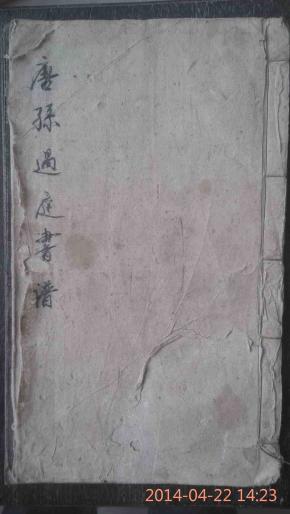 唐孫過庭書谱
2014-04-22 14:23